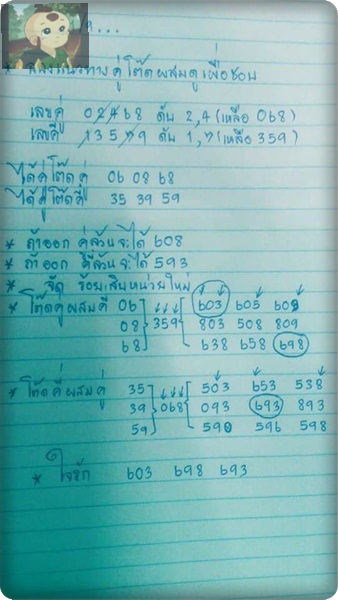 * ลองแนวทาง คู่โต๊ดผสมดูเผื่อชอบ
เลขคู่ 02468 ดับ 2,4 (เหลือ 068)
เลขคี่ 13579 ดับ 1,7 (เหลือ 359)
ได้คู่โต๊ดคู่ 06 08 68
ได้คู่โต๊ดคี่ 35 39 59
* ถ้าออก คู่ล้วนจะได้ 608
* ถ้าออก คี่ล้วนจะได้ 593
* จัด ร้อยสิบหน่วยใหม่
* โต๊ดคู่ผสมคี่ 06 603 605 609
08 359 803 508 809
68 638 658 698
* โต๊ดคี่ผสมคู่ 35 503 653 538
39 068 093 693 893
59 590 596 598
* ใจรัก 603 698 693